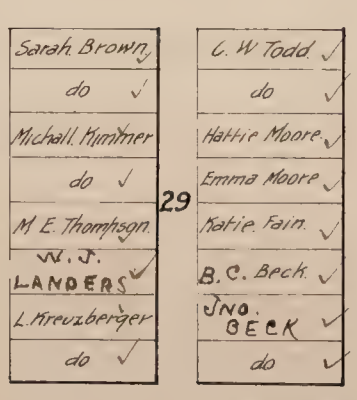 Sarah Brown ✓
do ✓
Michall. Kimmer ✓
do ✓
M E. Thompson. ✓
W. J. ✓
LANDERS
L. Kreuzberger ✓
do ✓
29
C. W Todd. ✓
do ✓
Hattie Moore. ✓
Emma Moore ✓
Katie. Fain. ✓
B. C. Beck. ✓
JNO. ✓
BECK
do ✓